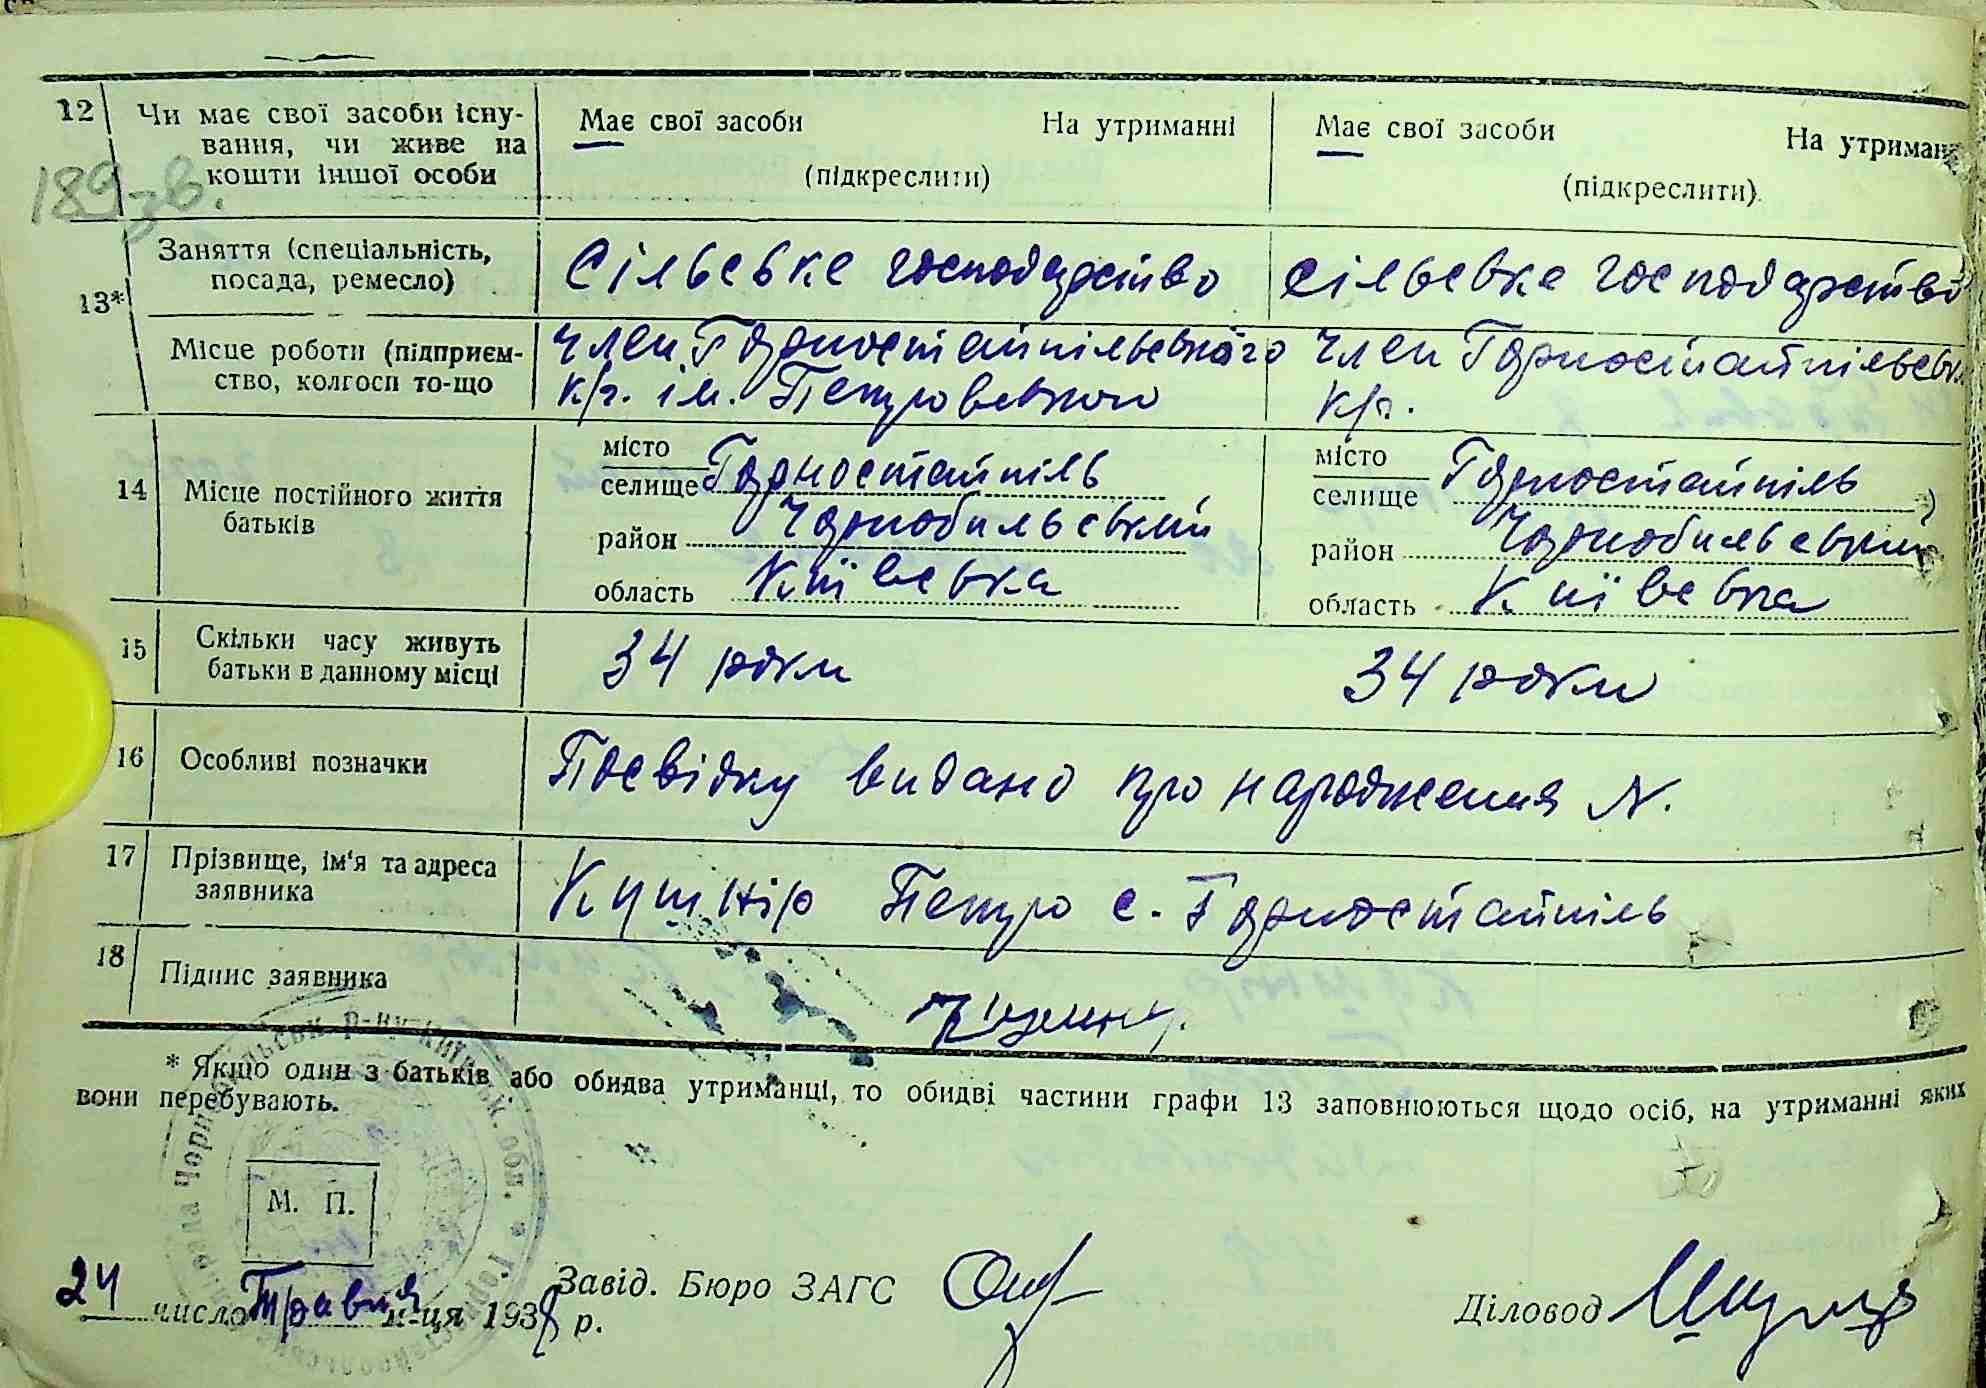 12 Чи має свої засоби існу-
вання, чи живе на
кошти іншої особи
Має свої засоби На утриманні
(підкреслити)
Має свої засоби На утриман
(підкреслити)
189 зв.
13* Заняття (спеціальність,
посада, ремесло)
Сільське господарство
Сільське господарство
Місце роботи (підприєм-
ство, колгосп то-що
член Горностайпільського
к/г. ім. Петровського
член Горностайпільськ
к/г.
14 Місце постійного життя
батьків
місто
селище Горностайпіль
район Чорнобильський
область Київська
місто
селище Горностайпіль
район Чорнобильський
область Київська
15 Скільки часу живуть
батьки в данному місці
34 роки
34 роки
16 Особливі позначки
Посвідку видано про народження №.
17 Прізвище, ім'я та адреса
заявника
Кушнір Петро с. Горностайпіль
18 Підпис заявника
Кушнір
* Якщо один з батьків або обидва утриманці, то обидві частини графи 13 заповнюються щодо осіб, на утриманні яких
вони перебувають.
М. П.
24 число Травня м-ця 1938 р.
Завід. Бюро ЗАГС
Діловод